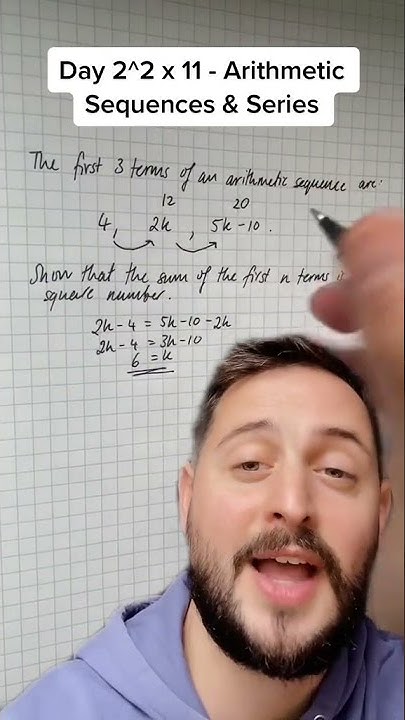 Day 2^2 x 11 - Arithmetic
Sequences & Series
The first 3 terms of an arithmetic sequence are:
12 20
4, 2k, 5k-10.
Show that the sum of the first n terms
square number.
2k-4 = 5k-10-2k
2k-4 = 3k-10
6 = k